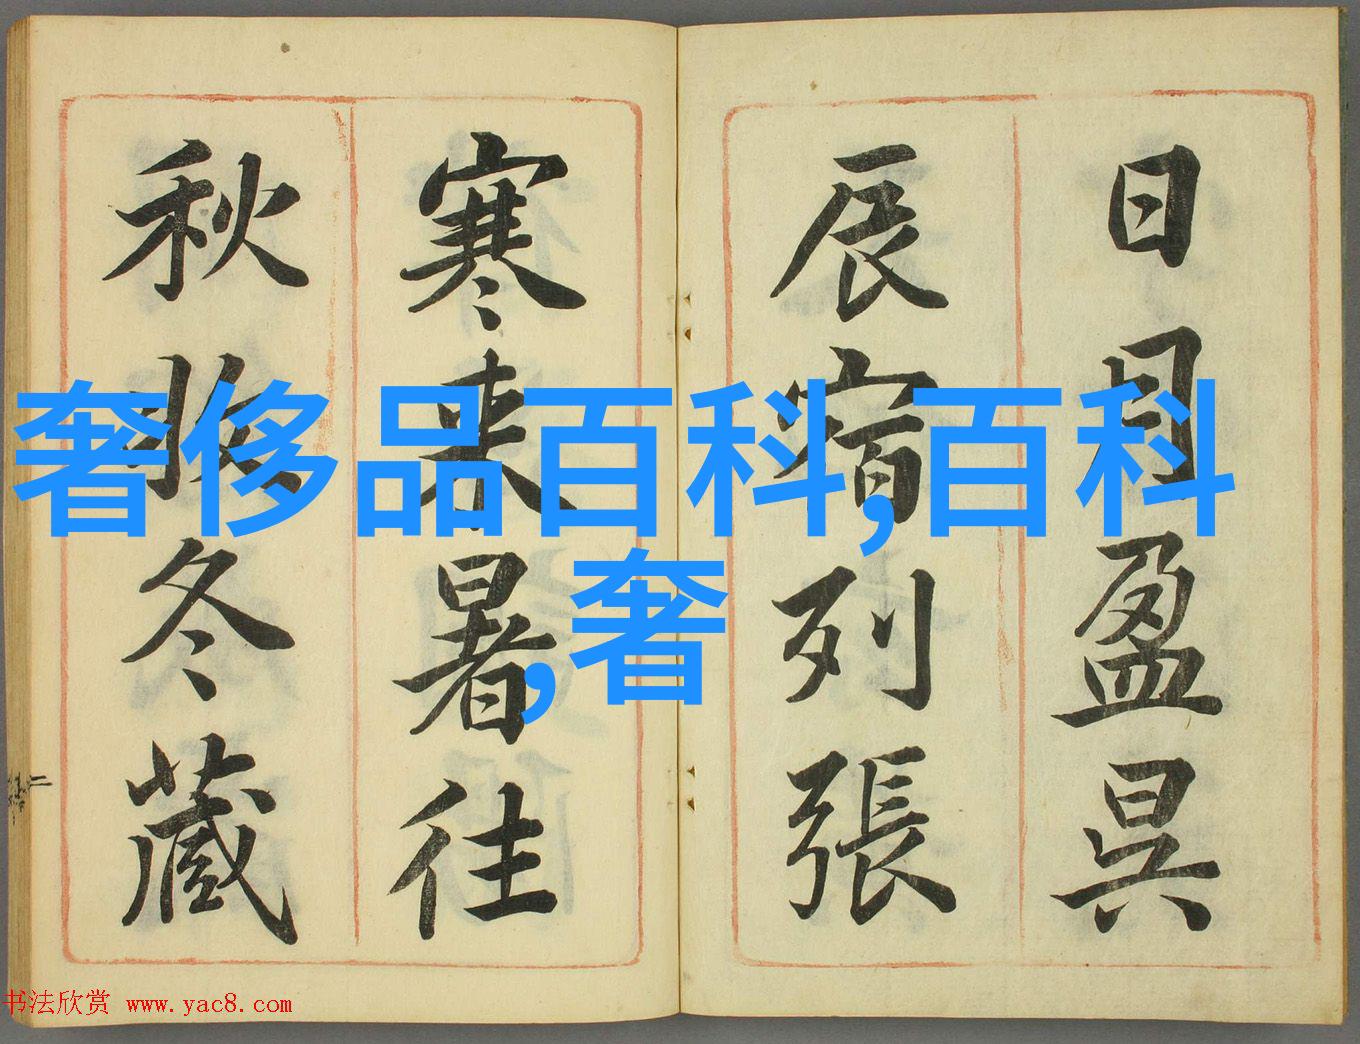 日月盈昃
辰宿列張
寒来暑往
秋收冬藏
奢侈品百科,百科
,奢
书法欣赏 www.yac8.com